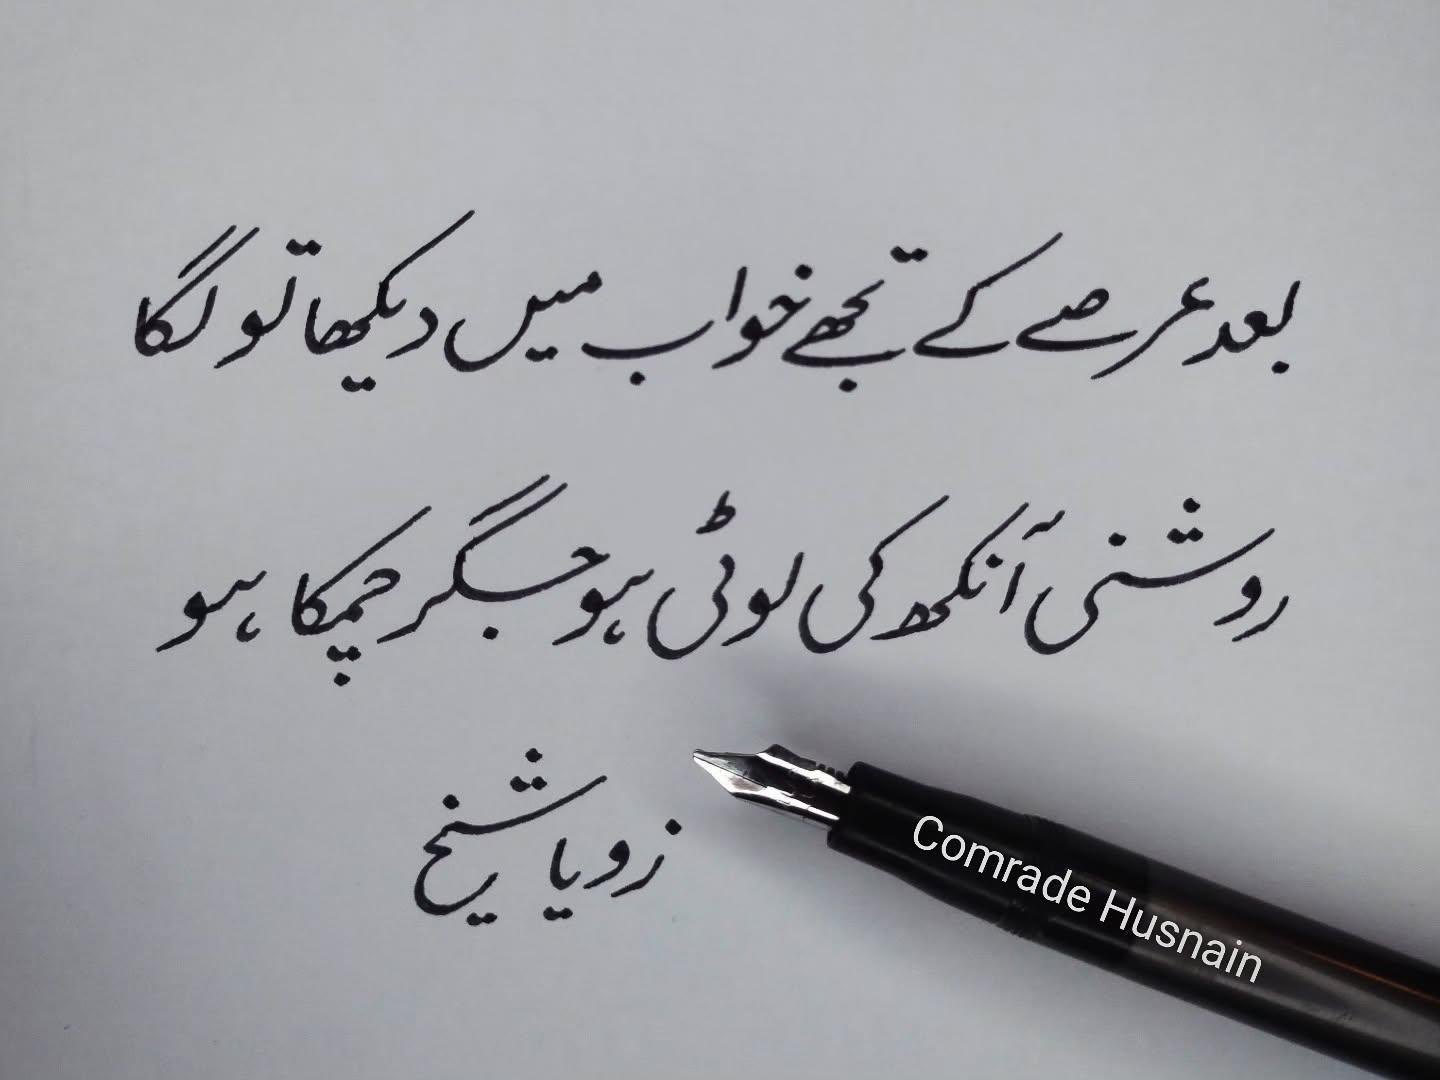 بعد عرصے کے تجھے خواب میں دیکھا تو لگا
روشنی آنکھ کی لوٹی ہو جگر چمکا ہو
زویا شیخ
Comrade Husnain